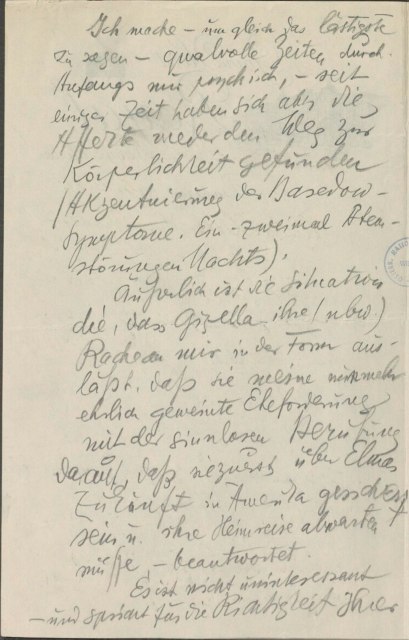 Ich mache – um gleich das lästigste
zu sagen – qualvolle Zeiten durch.
Anfangs nur psychisch, – seit
einiger Zeit haben sich aber die
Affekte wieder den Weg zur
Körperlichkeit gefunden
(Akzentuierung der Basedow-
symptome. Ein-zweimal Atem-
störungen Nachts).
Äußerlich ist die Situation
die, dass Gizella ihre (ubw.)
Rache an mir in der Form aus-
läßt, daß sie meine nunmehr
ehrlich gemeinte Eheforderung
mit der sinnlosen Berufung
darauf, daß sie zuerst über Elmas
Zukunft in Amerika
sein u. ihre Heimreise abwarten
müsse, – beantwortet.
Es ist nicht uninteressant
– und spricht für die Richtigkeit Ihrer